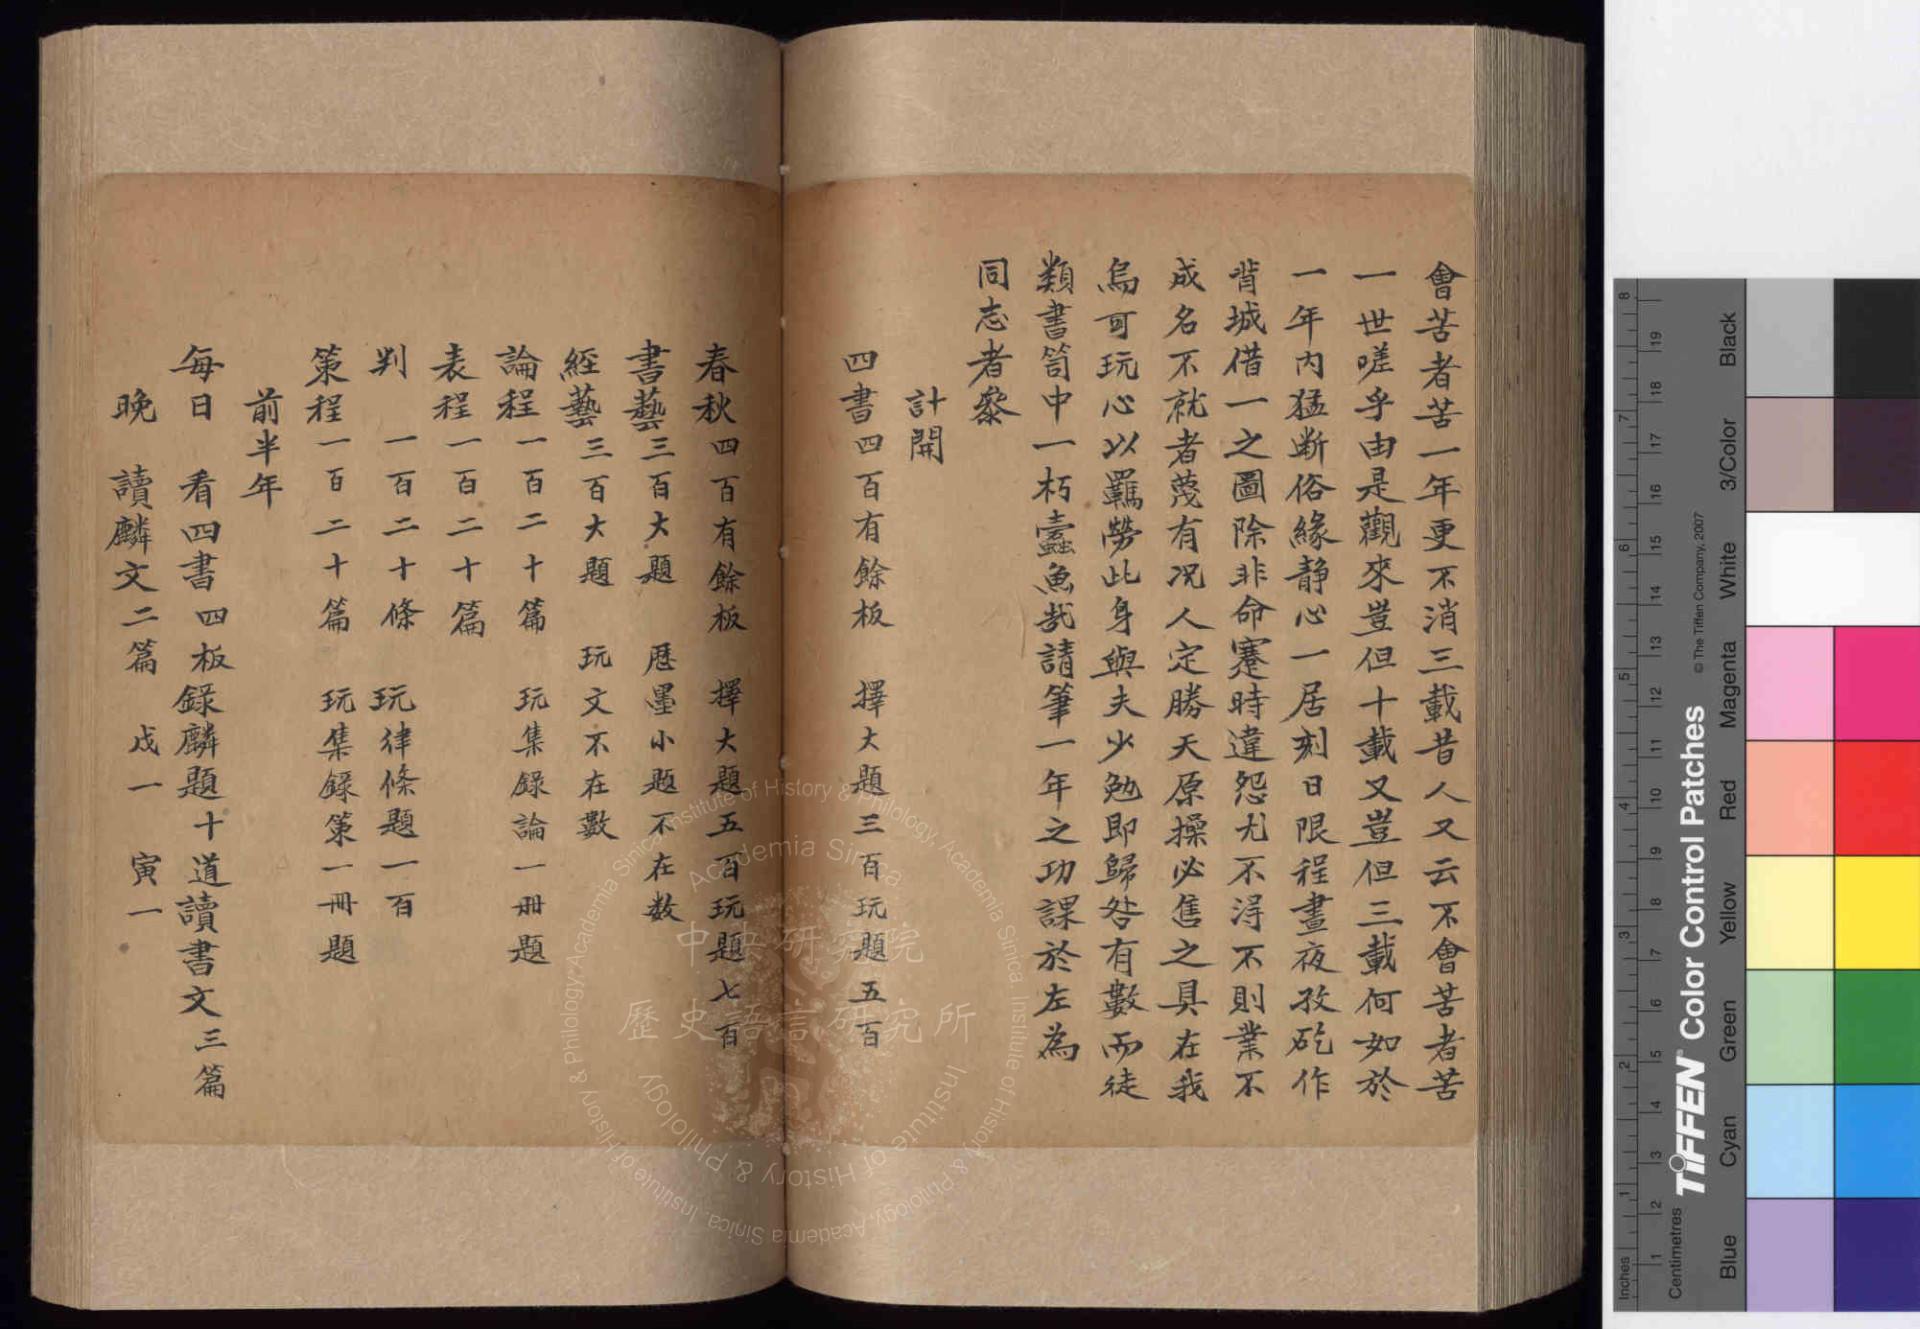 會苦者苦一年更不消三載昔人又云不會苦者苦
一世嗟乎由是觀來豈但十載又豈但三載何如於
一年內猛斷俗緣靜心一居刻日限程晝夜孜矻作
背城借一之圖除非命蹇時違怨尤不淂不則業不
成名不就者蔑有况人定勝天原操必售之具在我
烏可玩心以羈勞此身與夫少勉即歸咎有數而徒
類書笥中一朽蠹魚㢤請筆一年之功課於左為
同志者叅
計開
四書四百有餘板　擇大題三百玩題五百
春秋四百有餘板　擇大題五百玩題七百
書藝三百大題　歷墨小題不在数
經藝三百大題　玩文不在數
論程一百二十篇　玩集録論一冊題
表程一百二十篇
判　一百二十條　玩律條題一百
策程一百二十篇　玩集録策一冊題
前半年
每日　看四書四板録麟題十道讀書文三篇
晚　讀麟文二篇　戍一　寅一
中央研究院
歷史語言研究所
Academia Sinica
Institute of History & Philology
Institute of History & Philology, Academia Sinica. Institute of History & Philology, Academia Sinica. Institute of History & Philology, Academia Sinica.
Inches
1 2 3 4 5 6 7 8
Centimetres
1 2 3 4 5 6 7 8 9 10 11 12 13 14 15 16 17 18 19
TIFFEN® Color Control Patches
© The Tiffen Company, 2007
Blue
Cyan
Green
Yellow
Red
Magenta
White
3/Color
Black